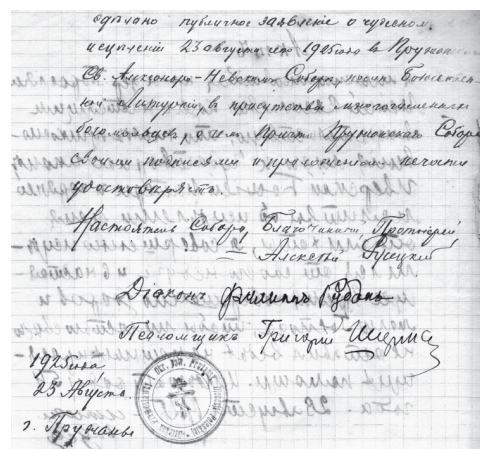 сдѣлано публичное заявленіе о чудесном
исцѣленіи 23 августа сего 1925 года в Пружан-
Св. Александро-Невском Соборѣ, послѣ Божествен-
ной Литургіи, в присутствіи многочисленных
богомольцев, о чем Причт Пружанского Собора
своими подписями и приложеніем печати
удостовѣряетъ.
Настоятель Собора, Благочинный, Протоіерей
Алексѣй
Діаконъ Филиппъ
Псаломщикъ Григорій
1925 года
23 Августа
г. Пружаны